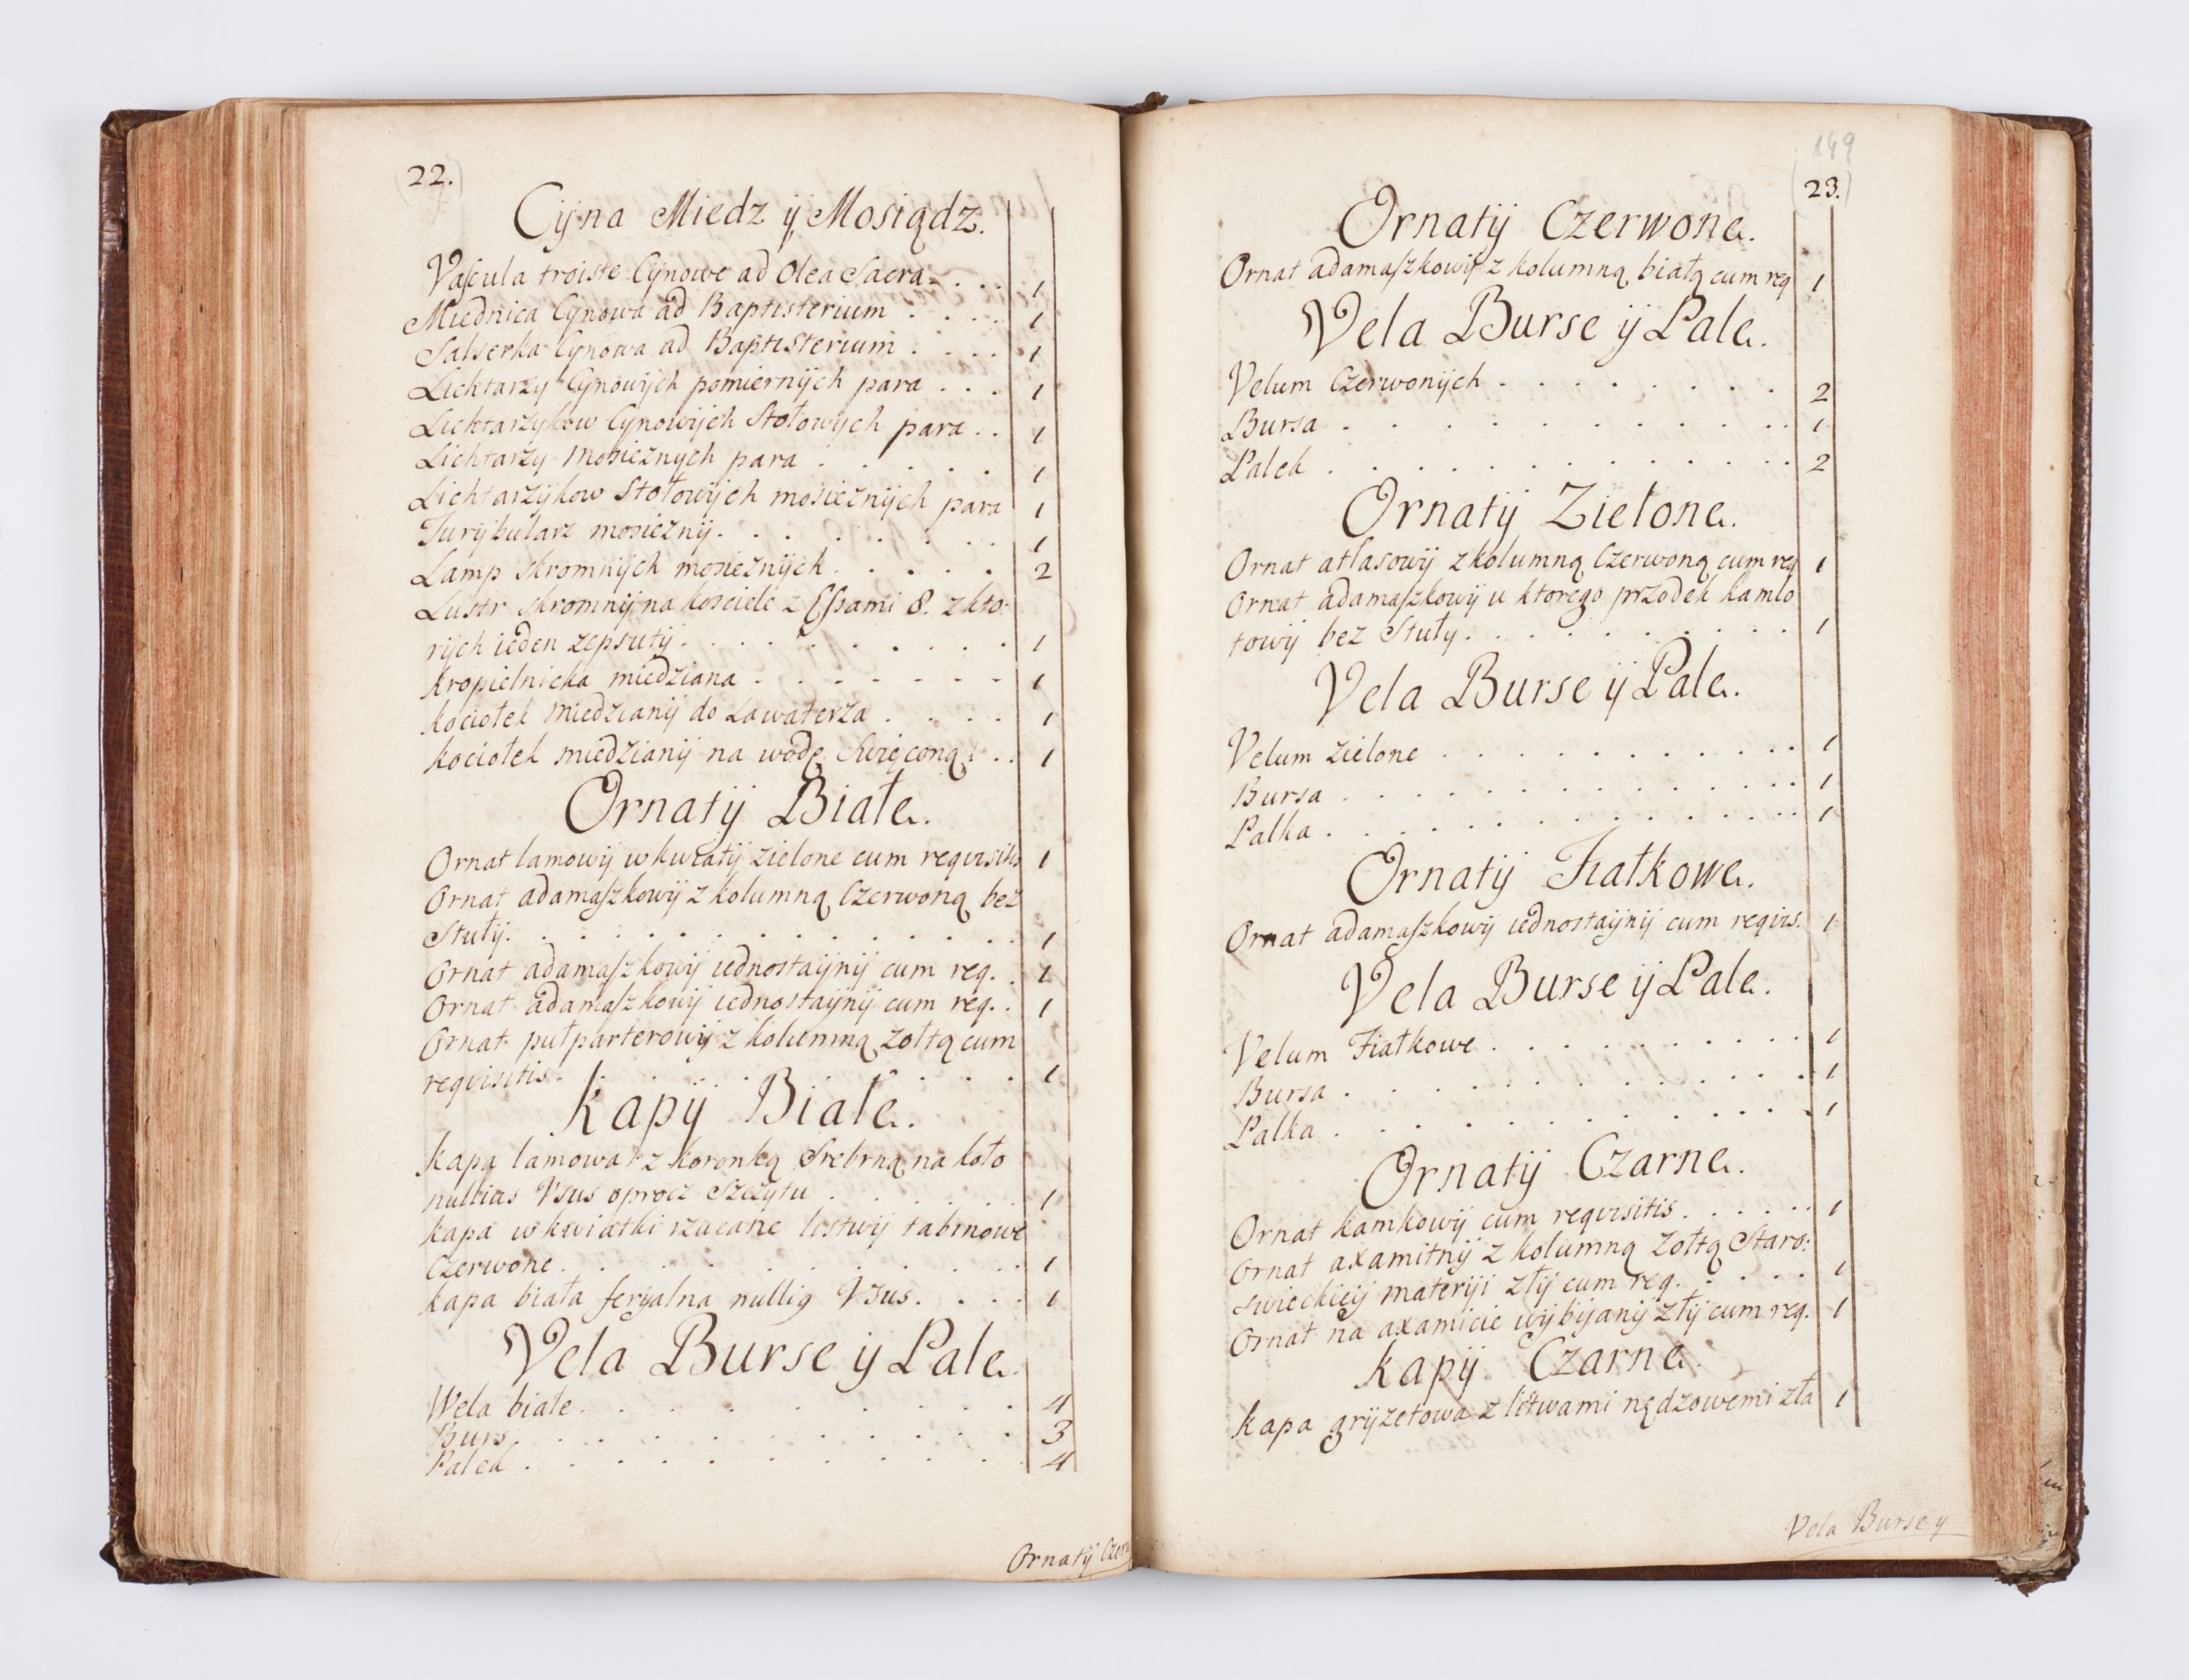 22.
Cyna Miedz ÿ Mosiądz.
Vascula troiste Cÿnowe ad Olea Sacra . . . 1
Miednica Cÿnowa ad Baptisterium . . . . 1
Salserka Cÿnowa ad Baptisterium . . . . 1
Lichtarzy Cÿnowÿch pomiernÿch para . . . 1
Lichtarzykow Cÿnowÿch Stołowÿch para . . 1
Lichtarzy Mosieznych para . . . . . 1
Lichtarzÿkow Stołowÿch mosieznÿch para 1
Turÿbularz mosieznÿ . . . . . . . 1
Lamp skromnÿch mosieznÿch . . . . . 2
Lustr skromnÿ na kosciele z Essami 8. z kto:
rÿch ieden zepsutÿ . . . . . . . . . 1
kropielnicka miedziana . . . . . . . 1
kociołek miedzianÿ do Lawaterza . . . . 1
kociołek miedzianÿ na wodę Swięconą . . 1
Ornatÿ Białe.
Ornat lamowÿ w kwiatÿ zielone cum reqvisitis 1
Ornat adamaszkowÿ z kolumną Czerwoną bez
Stułÿ . . . . . . . . . . . . . 1
Ornat adamaszkowÿ iednostaÿnÿ cum req. . 1
Ornat adamaszkowÿ iednostaÿnÿ cum req. . 1
Ornat pułparterowÿ z kolumną żołtą cum
reqvisitis . . . . . . . . . . . 1
Kapÿ Białe.
kapa lamowa z koronką Srebrną na koło
nullius Vsus oprocz Szczÿtu . . . . . 1
kapa w kwiatki rzucane listwÿ tabinowe
Czerwone . . . . . . . . . . . 1
kapa biała feryalna nullig Vsus . . . . 1
Vela Burse ÿ Pale.
Wela białe . . . . . . . . . . 4
Burs . . . . . . . . . . . 3
Palek . . . . . . . . . . . 4
Ornatÿ Czerw
149
23.
Ornatÿ Czerwone.
Ornat adamaszkowÿ z kolumną białą cum req 1
Vela Burse ÿ Pale.
Velum Czerwonÿch . . . . . . . . 2
Bursa . . . . . . . . . . . . 1
Palek . . . . . . . . . . . . 2
Ornatÿ Zielone.
Ornat atlasowÿ z kolumną Czerwoną cum req 1
Ornat adamaszkowÿ u ktorego przodek kamlo
towÿ bez Stuły . . . . . . . . . 1
Vela Burse ÿ Pale.
Velum zielone . . . . . . . . . . 1
Bursa . . . . . . . . . . . . 1
Palka . . . . . . . . . . . . 1
Ornatÿ Fiałkowe.
Ornat adamaszkowÿ iednostaÿnÿ cum reqvis. 1
Vela Burse ÿ Pale.
Velum Fiałkowe . . . . . . . . . 1
Bursa . . . . . . . . . . . . 1
Palka . . . . . . . . . . . . 1
Ornatÿ Czarne.
Ornat kamkowÿ cum reqvisitis . . . . . 1
Ornat axamitnÿ z kolumną żołtą Staro:
swieckieÿ materÿi złÿ cum req. . . . . 1
Ornat na axamicie wÿbÿanÿ złÿ cum req. 1
kapÿ Czarne.
kapa grÿzetowa z listwami nędzowemi zła 1
Vela Burse y